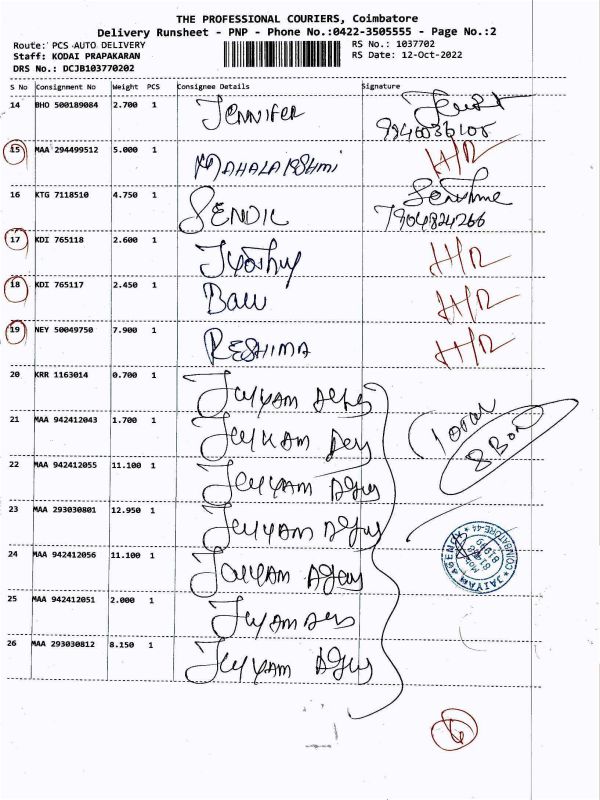 THE PROFESSIONAL COURIERS, Coimbatore
Delivery Runsheet - PNP - Phone No.:0422-3505555 - Page No.:2
Route: PCS AUTO DELIVERY RS No.: 1037702
Staff: KODAI PRAPAKARAN RS Date: 12-Oct-2022
DRS No.: DCJB103770202
S No Consignment No Weight PCS Consignee Details Signature
14 BHO 500189084 2.700 1 JENNIFER
15 MAA 294499512 5.000 1 MAHALAKSHMI H/R
16 KTG 7118510 4.750 1 SENDIL
7904824266
17 KDI 765118 2.600 1 H/R
18 KDI 765117 2.450 1 H/R
19 NEY 50049750 7.900 1 RESHIMA H/R
20 KRR 1163014 0.700 1
21 MAA 942412043 1.700 1
Total
8 Box
22 MAA 942412055 11.100 1
23 MAA 293030801 12.950 1
24 MAA 942412056 11.100 1
JAIYAM AGENCY
COIMBATORE-44
25 MAA 942412051 2.000 1
26 MAA 293030812 8.150 1